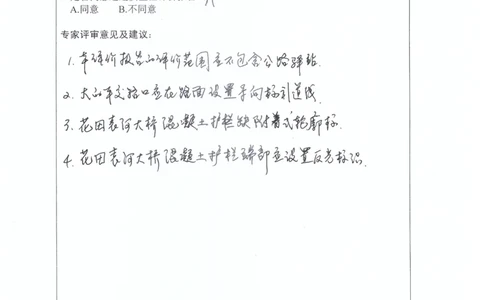 A.同意 B.不同意
专家评审意见及建议：
1.本评价报告的评价范围是不包含公路驿站.
2.大的平交路口应在路面设置导向标引道线.
3.花田表河大桥混凝土护栏缺附着式轮廓标.
4.花田表河大桥混凝土护栏端部应设置反光标识.